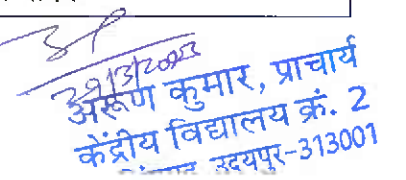 29/3/2023
अरूण कुमार, प्राचार्य
केंद्रीय विद्यालय क्रं. 2
उदयपुर-313001